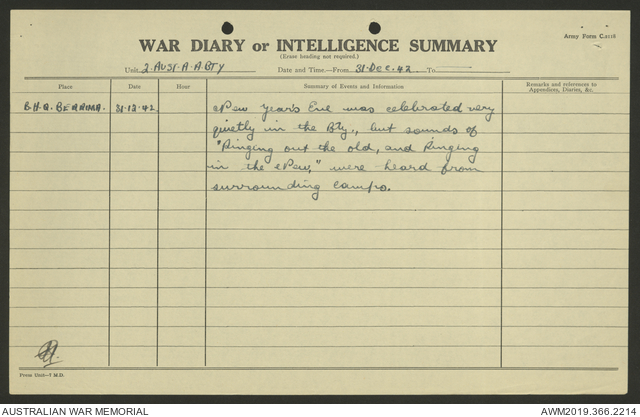 Army Form C.2118
WAR DIARY or INTELLIGENCE SUMMARY
(Erase heading not required.)
Unit 2 AUST. A.A BTY Date and Time—From 31-Dec. 42 To
Place Date Hour Summary of Events and Information Remarks and references to Appendices, Diaries, &c.
B.H.Q. BERRIMA. 31-12-42 New Year's Eve was celebrated very
quietly in the Bty., but sounds of
"Ringing out the old, and Ringing
in the New," were heard from
surrounding camps.
AUSTRALIAN WAR MEMORIAL AWM2019.366.2214